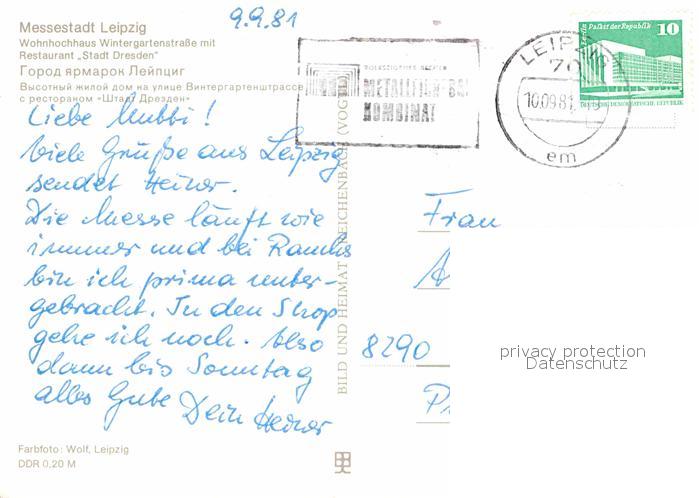 9.9.81
Messestadt Leipzig
Wohnhochhaus Wintergartenstraße mit
Restaurant „Stadt Dresden"
Город ярмарок Лейпциг
Высотный жилой дом на улице Винтергартенштрассе
с рестораном «Штадт Дрезден»
Liebe Mutti!
Viele Grüße aus Leipzig
sendet Heiner.
Die Messe läuft wie
immer und bei Rauchs
bin ich prima unter-
gebracht. In den Shop
gehe ich noch. Also
dann bis Sonntag
alles Gute Dein Heiner
Farbfoto: Wolf, Leipzig
DDR 0,20 M
BILD UND HEIMAT REICHENBACH (VOGTL)
VOLKSEIGENER
METALLEICHTBAU
KOMBINAT
LEIPZIG
70
10.09.81
em
Berlin Palast der Republik 10
DEUTSCHE DEMOKRATISCHE REPUBLIK
Frau
A
8290
P
privacy protection
Datenschutz